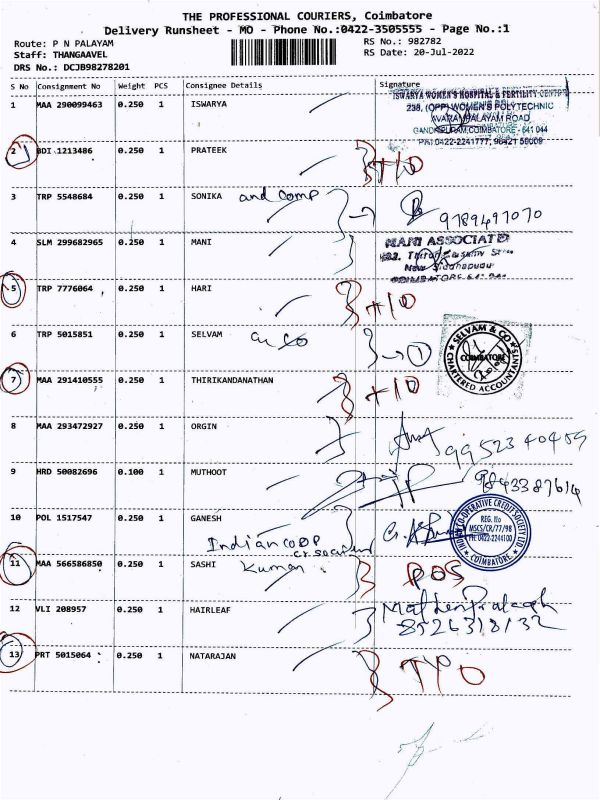 THE PROFESSIONAL COURIERS, Coimbatore
Delivery Runsheet - MO - Phone No.:0422-3505555 - Page No.:1
Route: P N PALAYAM RS No.: 982782
Staff: THANGAAVEL RS Date: 20-Jul-2022
DRS No.: DCJB98278201
S No Consignment No Weight PCS Consignee Details Signature
1 MAA 290099463 0.250 1 ISWARYA
ISWARYA WOMEN'S HOSPITAL & FERTILITY CENTRE
238, (OPP) WOMEN'S POLYTECHNIC
AVARAMPALAYAM ROAD
GANDHIPURAM, COIMBATORE - 641 044
PH: 0422-2241777, 98421 59009
2 BDI 1213486 0.250 1 PRATEEK
3 TRP 5548684 0.250 1 SONIKA and comp
9789497070
4 SLM 299682965 0.250 1 MANI
MANI ASSOCIATE
5 TRP 7776064 0.250 1 HARI
6 TRP 5015851 0.250 1 SELVAM & co 1
SELVAM & CO
COIMBATORE
CHARTERED ACCOUNTANTS
7 MAA 291410555 0.250 1 THIRIKANDANATHAN
8 MAA 293472927 0.250 1 ORGIN
9 HRD 50082696 0.100 1 MUTHOOT
9843387614
10 POL 1517547 0.250 1 GANESH
Indian coop
CO-OPERATIVE CREDIT SOCIETY LTD
REG. No
MSCS/CR/77/98
PH: 0422-2244100
COIMBATORE
11 MAA 566586850 0.250 1 SASHI Kuman POS
12 VLI 208957 0.250 1 HAIRLEAF
8526318132
13 PRT 5015064 0.250 1 NATARAJAN